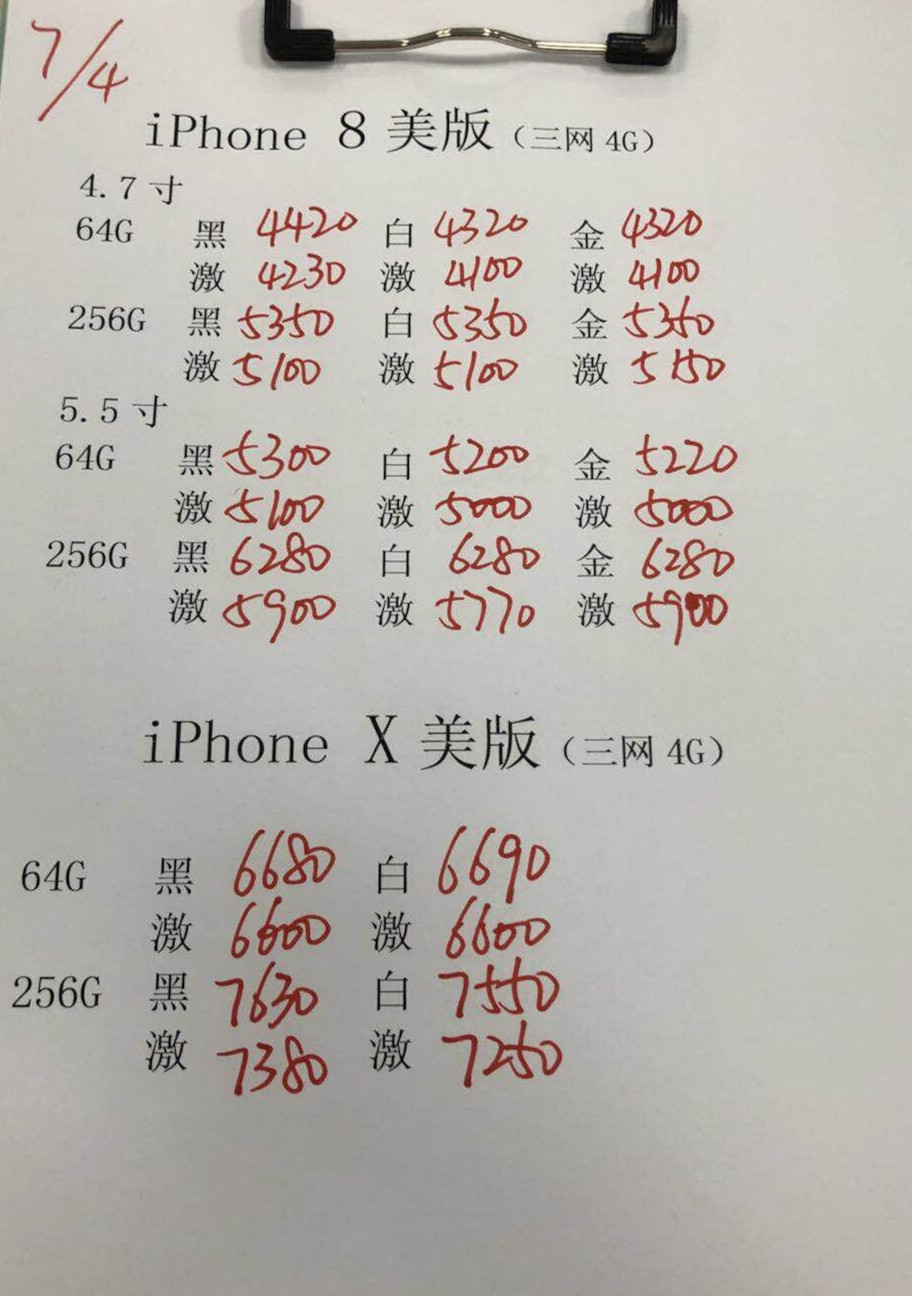 7/4
iPhone 8 美版（三网 4G）
4.7 寸
64G 黑 4420 白 4320 金 4320
激 4230 激 4100 激 4100
256G 黑 5350 白 5350 金 5350
激 5100 激 5100 激 5150
5.5 寸
64G 黑 5300 白 5200 金 5220
激 5100 激 5000 激 5000
256G 黑 6280 白 6280 金 6280
激 5900 激 5770 激 5900
iPhone X 美版（三网 4G）
64G 黑 6680 白 6690
激 6600 激 6600
256G 黑 7630 白 7550
激 7380 激 7250